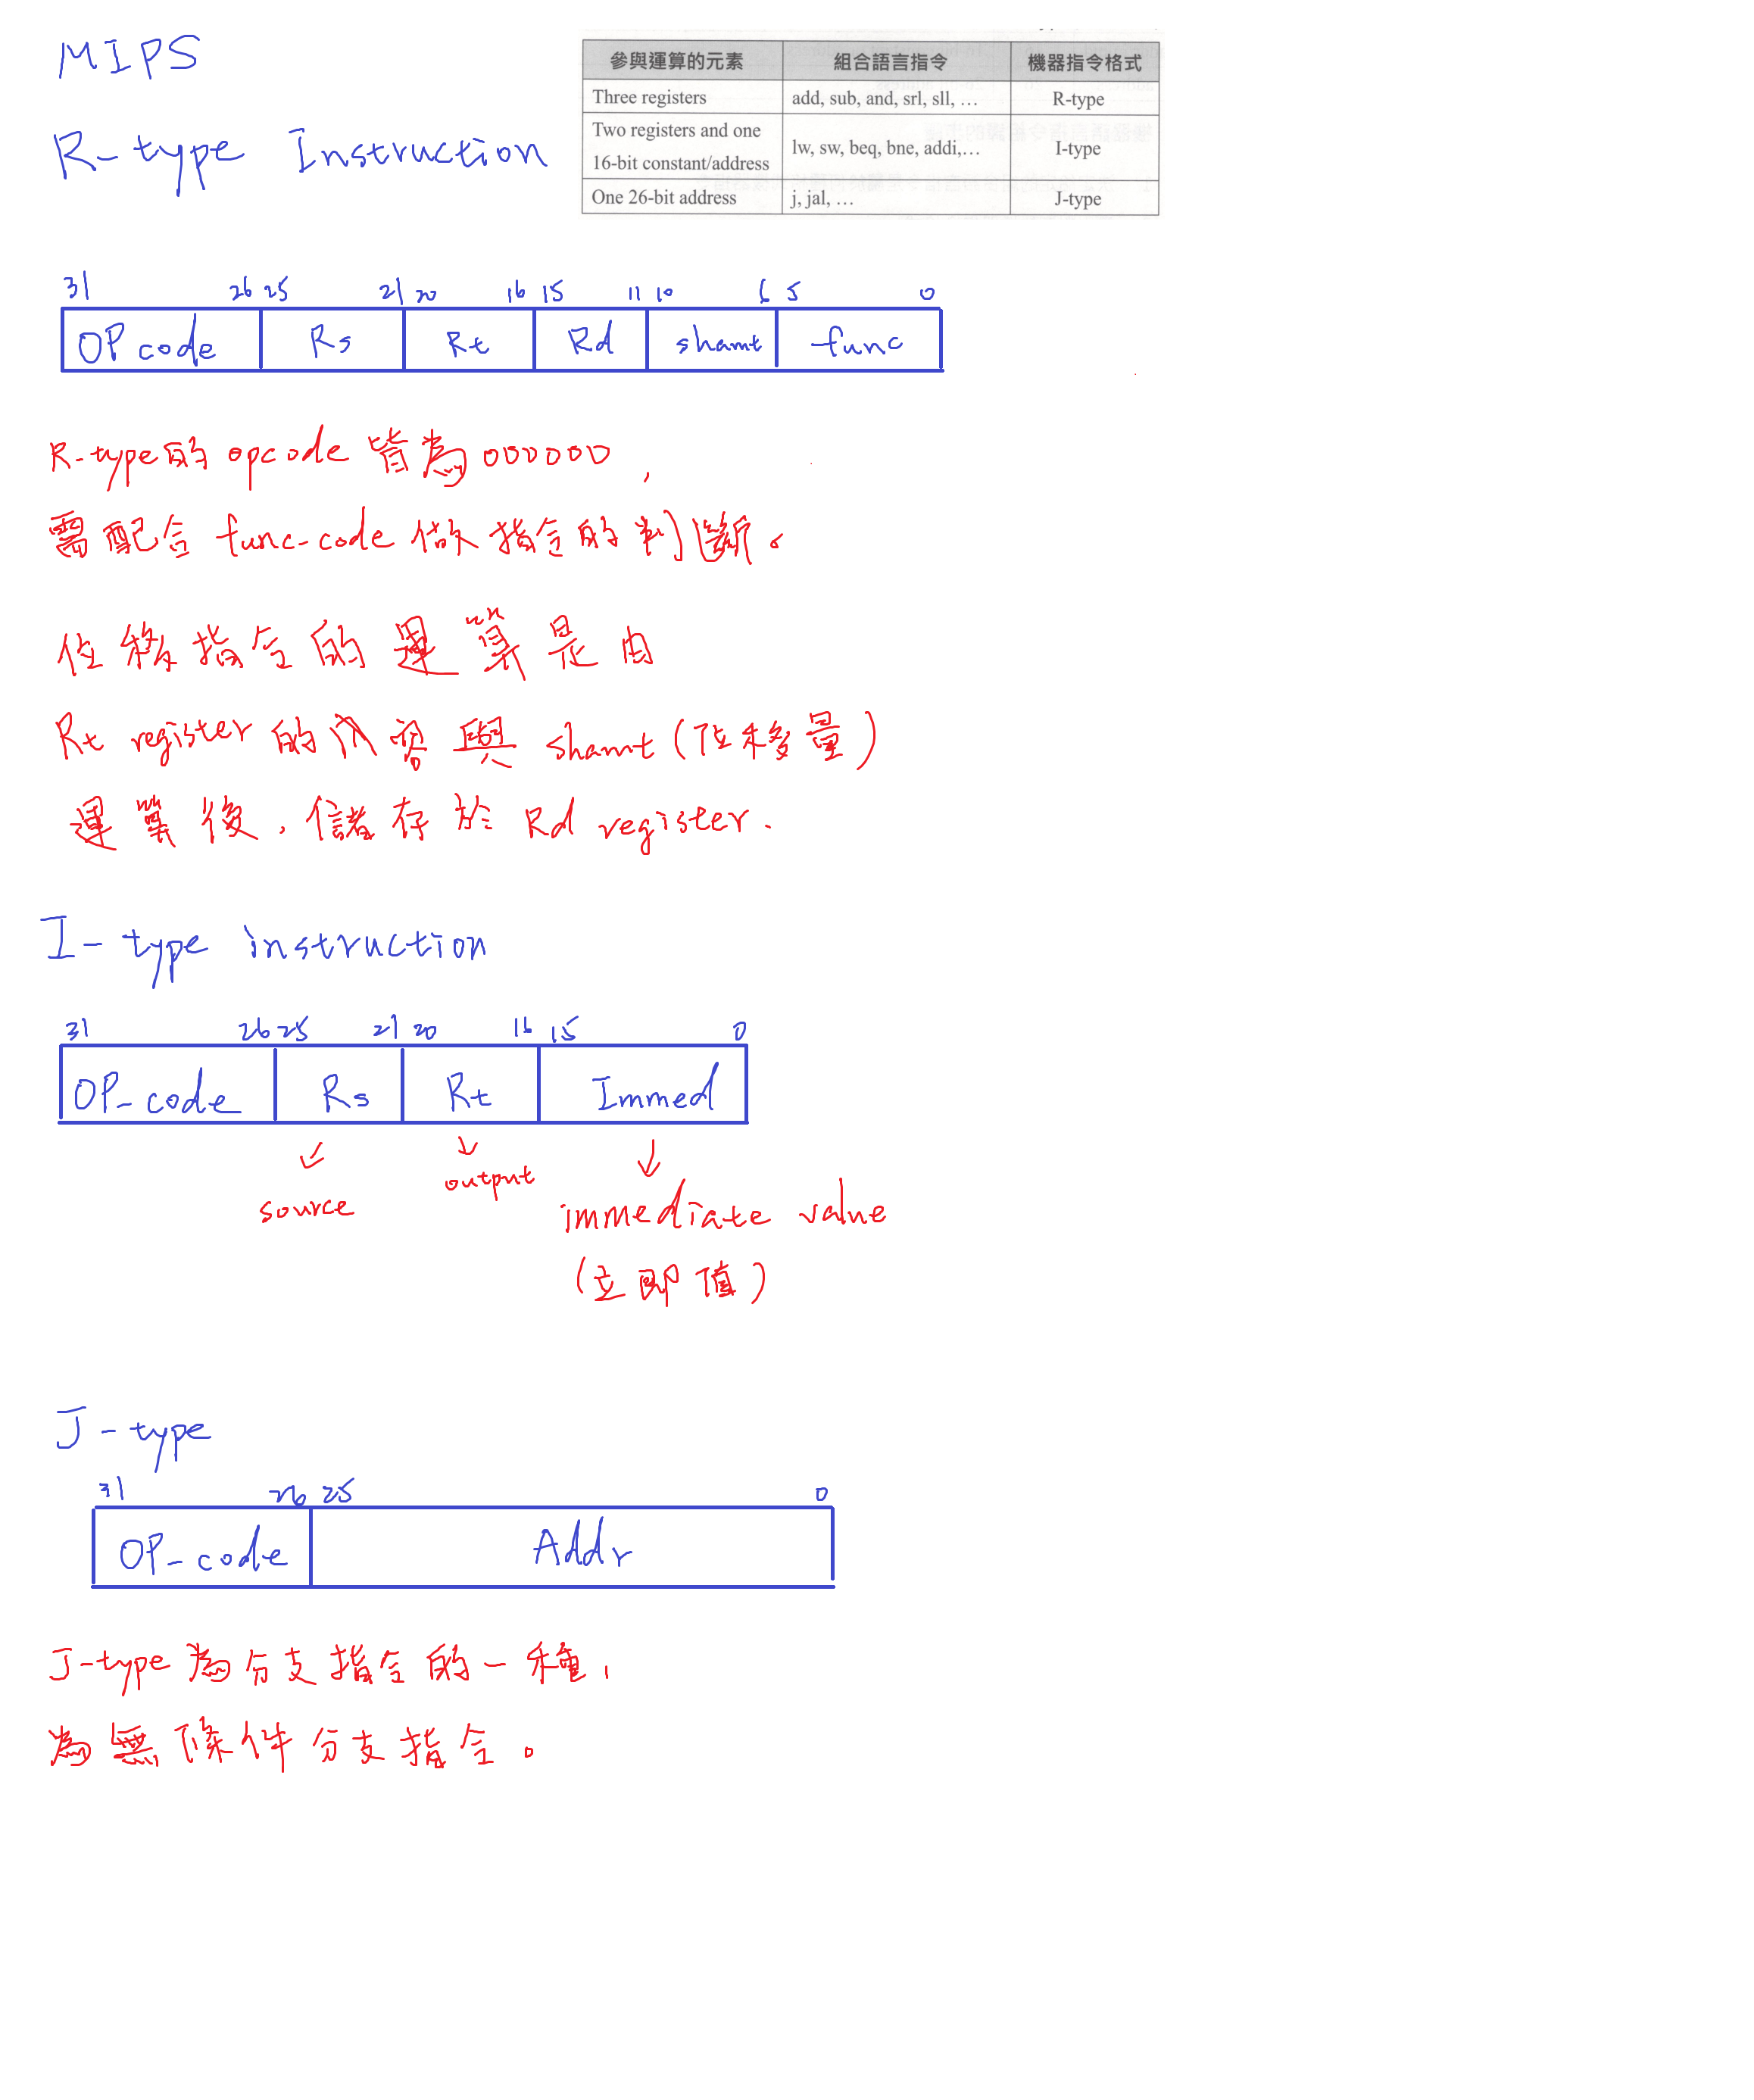 MIPS
R-type Instruction
參與運算的元素 組合語言指令 機器指令格式
Three registers add, sub, and, srl, sll, … R-type
Two registers and one
16-bit constant/address lw, sw, beq, bne, addi,… I-type
One 26-bit address j, jal, … J-type
31 26 25 21 20 16 15 11 10 6 5 0
OP code Rs Rt Rd shamt func
R-type的 opcode 皆為 000000,
需配合 func-code 做指令的判斷。
位移指令的運算是由
Rt register 的內容與 shamt (位移量)
運算後, 儲存於 Rd register.
I-type instruction
31 26 25 21 20 16 15 0
OP-code Rs Rt Immed
source output immediate value
(立即值)
J-type
31 26 25 0
OP-code Addr
J-type 為分支指令的一種,
為無條件分支指令。